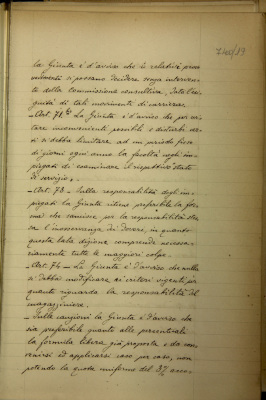 740/13
la Giunta è d'avviso che i relativi prov
vedimenti si possano decidere senza interven
to della Commissione consultiva, data l'esi
guità di tali movimenti di carriera.
- Art. 72° La Giunta è d'avviso che per evi
tare inconvenienti possibili e disturbi va
ri si debba limitare ad un periodo fisso
di giorni ogni anno la facoltà negli im
piegati di esaminare il rispettivo stato
di servizio.
- Art. 73 - Sulla responsabilità degli im
piegati la Giunta ritiene preferibile la for
ma che sancisce per la responsabilità stes
sa l'inosservanza di doveri, in quanto
questa lata dizione comprende necessa
riamente tutte le maggiori colpe.
- Art. 74 - La Giunta è d'avviso che nulla
si debba modificare ai criteri vigenti per
quanto riguarda la responsabilità del
magazziniere.
- Sulle cauzioni la Giunta è d'avviso che
sia preferibile quanto alle percentuali
la formula libera già proposta e da con
servarsi ed applicarsi caso per caso, non
potendo la quota uniforme del 3%